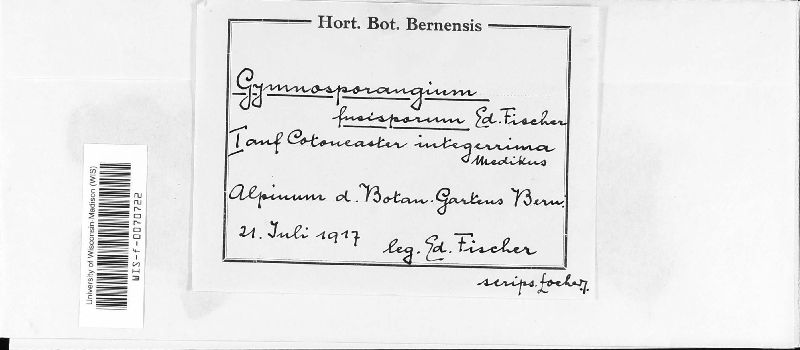 Hort. Bot. Bernensis
Gymnosporangium
fusisporum Ed. Fischer
I auf Cotoneaster integerrima
Medikus
Alpinum d. Botan. Gartens Bern.
21. Juli 1917
leg. Ed. Fischer
scrips.
University of Wisconsin-Madison (WIS)
WIS-f-0070722